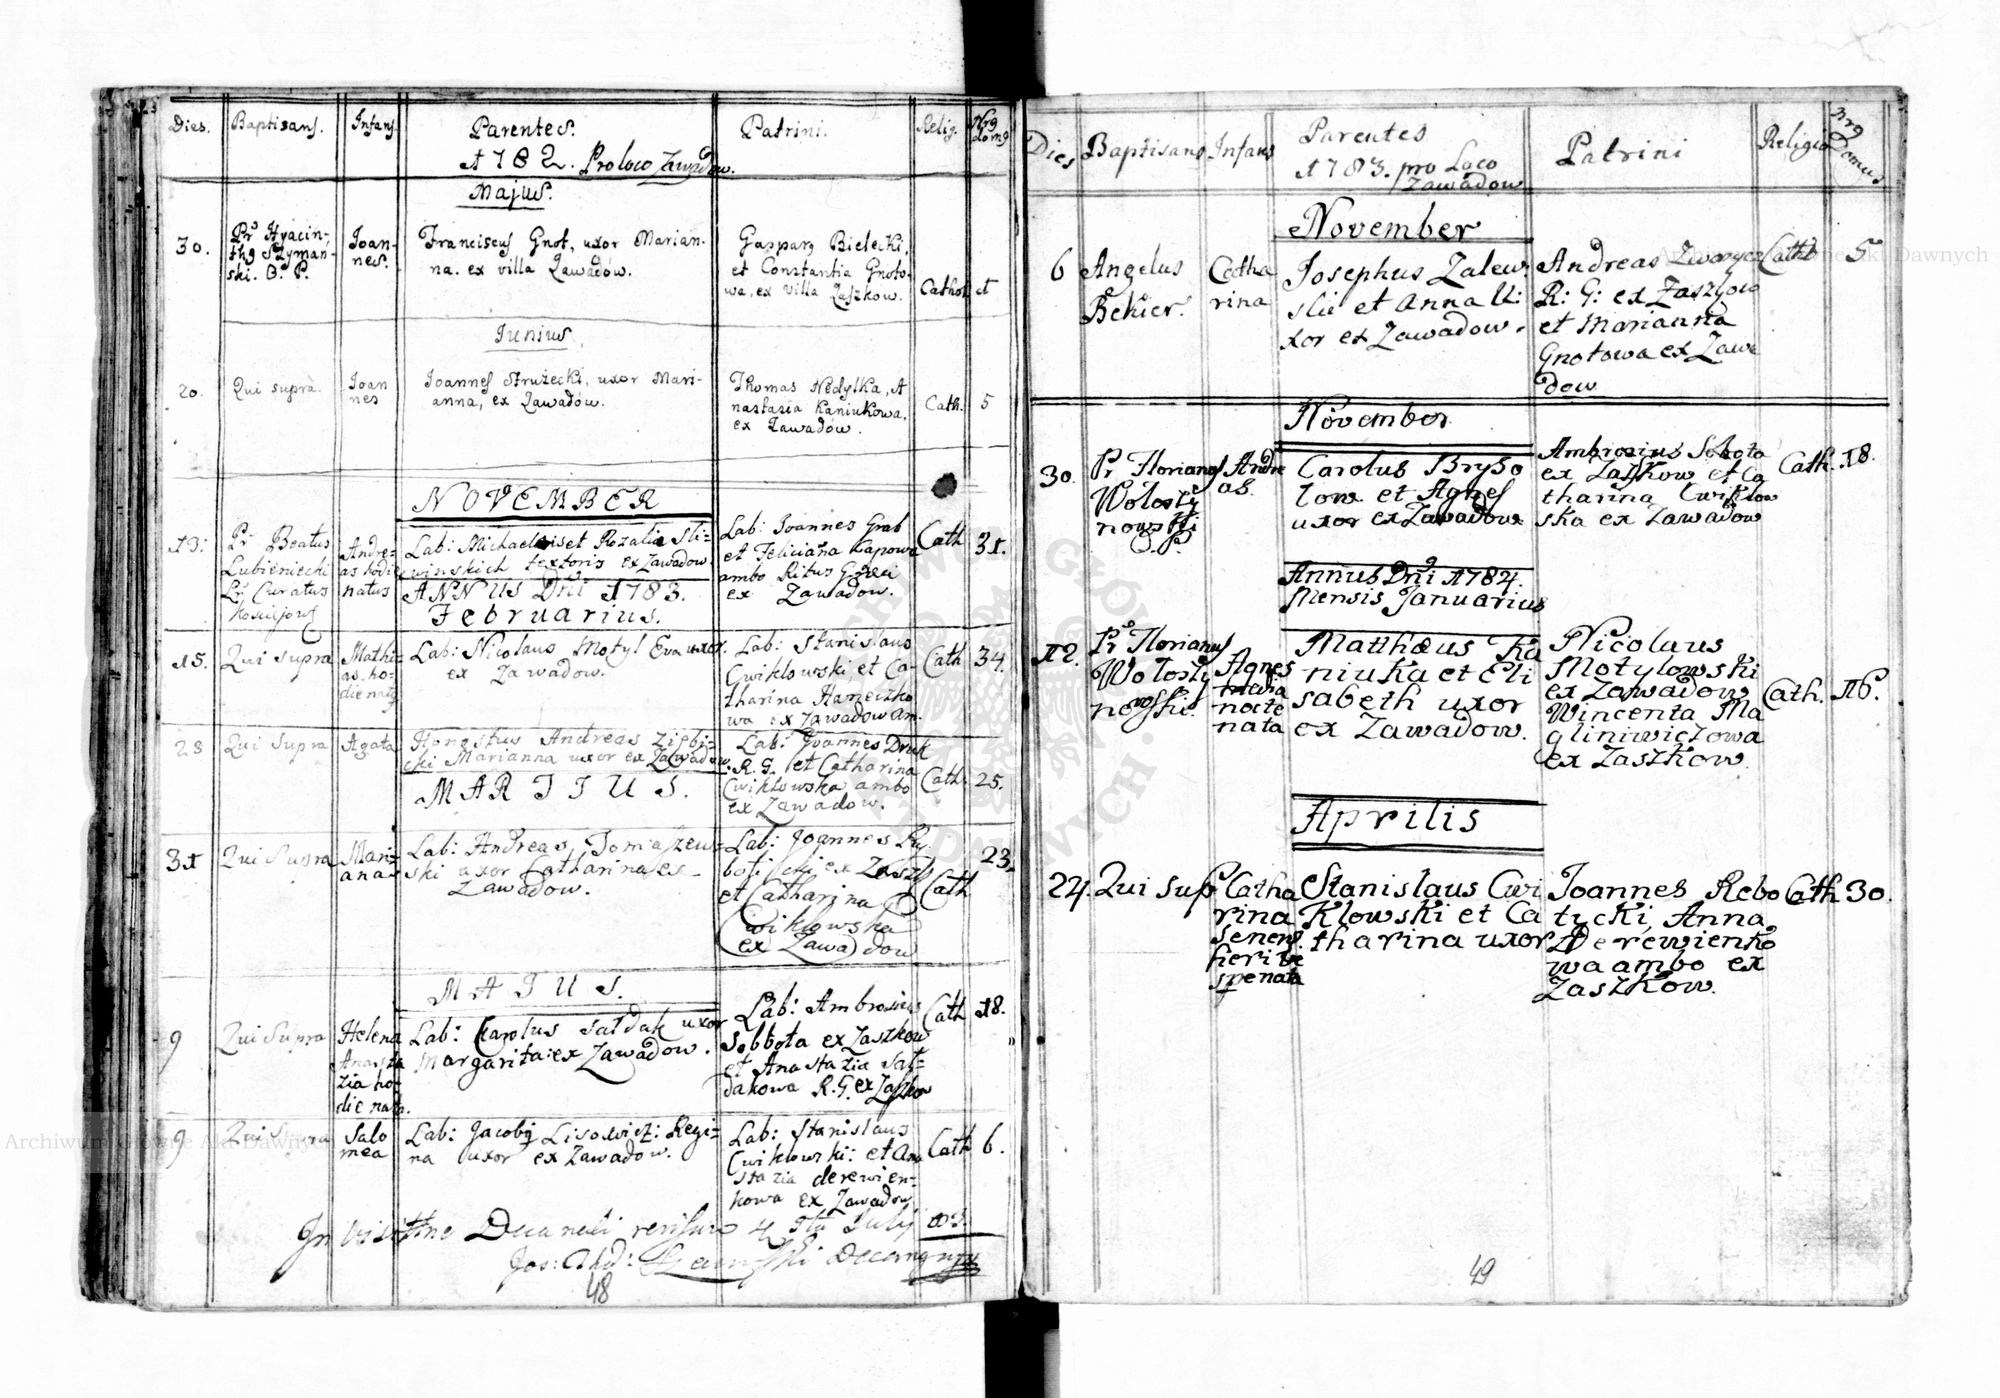 Dies. Baptisans. Infans. Parentes. Patrini. Relig. Nrg Domg
A 1782. Pro loco Zawadow.
Majus.
30. Pr Hyacin-
thg Szyman-
ski. O. P.
Ioan-
nes.
Franciscus Gnot, uxor Marian-
na. ex villa Zawadów.
Gasparg Bielecki,
et Constantia Gnoto-
wa, ex villa Zaszkow.
Cathol
Junius.
20. Qui suprà.
Ioan
nes
Joannes Strużecki, uxor Mari-
anna, ex Zawadów.
Thomas Nedylka, A
nastasia Kaniukowa,
ex Zawadów.
Cath. 5
NOVEMBER
19. Pr Beatus
Lubieniecki
Curatus
Andre-
as hodie
natus
Lab: Michael et Rozalia Sli-
winskich textoris ex Zawadow
Lab: Joannes Grab
et Feliciana Kapowa
ambo Ritus Græci
ex Zawadow.
Cath 31.
ANNUS Dni 1783.
Februarius.
15. Qui supra
Mathi-
as ho-
die natg
Lab: Nicolaus Motyl Eva uxor.
ex Zawadow.
Lab: Stanislaus
Cwiklowski et Ca-
tharina Haneczko
wa ex Zawadow am.
Cath 34.
23 Qui Supra Agata
Honestus Andreas Ziebi-
cki Marianna uxor ex Zawadow.
Lab: Joannes Druk
R. G. et Catharina
Cwiklowska ambo
ex Zawadow.
Cath. 25.
MARTIUS.
31 Qui Supra
Mari-
ana
Lab: Andreas Tomaszew-
ski uxor Catharina ex
Zawadow.
Lab: Joannes Ry
boticki ex Zaszk
et Catharina
Cwiklowska
ex Zawadow
Cath 23.
MAIUS.
9 Qui Supra
Helena
Anasta
zia ho-
die nata.
Lab: Karolus Sałdak uxor
Margarita: ex Zawadow.
Lab: Ambrosius
Sobbota ex Zaszkow
et Anastazia Sał-
dakowa R. G. ex Zaszkow
Cath 18.
9 Qui Supra
Salo
mea
Lab: Jacobg Lisowicz: Regi-
na uxor ex Zawadow.
Lab: Stanislaus
Cwiklowski: et Ana
stazia derewien-
kowa ex Zawadow
Cath 6.
In Decanali 4 July
48
Dies Baptisans Infans Parentes Patrini Religio Nrg Domus
A 1783. pro Loco
Zawadow
November
6 Angelus
Bekier.
Catha
rina
Josephus Zalew
ski et Anna U:
xor ex Zawadow.
Andreas
R: G: ex Zaszkow
et Marianna
Gnotowa ex Zawa
dow
Cath 5
November
30. Pr Florianus
Wolosty
nowski
O. P.
Andre
as.
Carolus Bryso
low et Agnes
uxor ex Zawadow
Ambrosius Sobota
ex Zaszkow et Ca
tharina Cwiklow
ska ex Zawadow
Cath. 18.
Annus Dni 1784.
Mensis Januarius
12. Pr Florianus
Wolosty
nowski.
Agnes
media
nocte
nata
Matthæus Ka
niuka et Eli
sabeth uxor
ex Zawadow.
Nicolaus
Motylowski
ex Zawadow
Wincenta Ma
gliniwiczowa
ex Zaszkow.
Cath. 16.
Aprilis
24. Qui sup
Catha
rina
Senens.
heri ve
spe nata
Stanislaus Cwi
Klowski et Ca
tharina uxor
Joannes Rebo
tycki, Anna
Derewienko
wa ambo ex
Zaszkow.
Cath 30.
49
Archiwum Główne Akt Dawnych